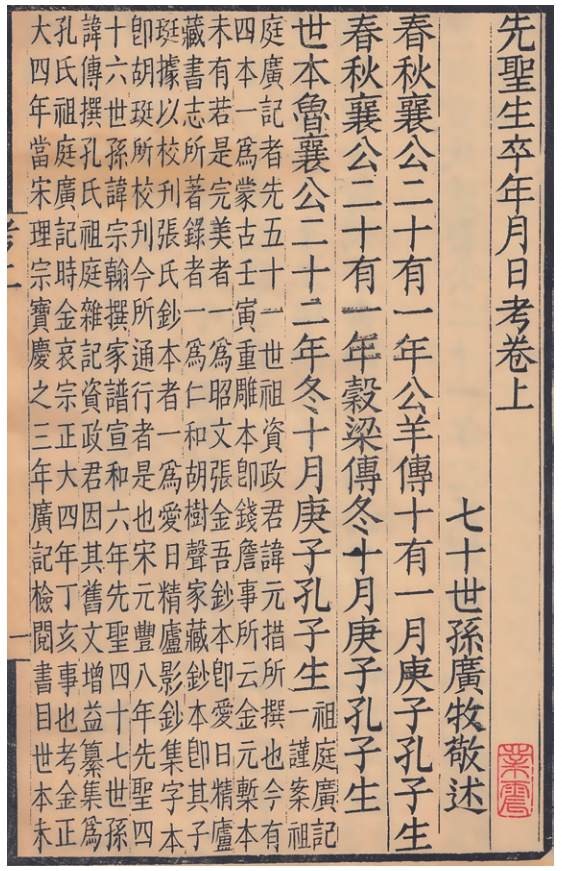 先聖生卒年月日考卷上
七十世孫廣牧敬述
春秋襄公二十有一年公羊傳十有一月庚子孔子生
春秋襄公二十有一年穀梁傳冬十月庚子孔子生
世本魯襄公二十二年冬十月庚子孔子生
祖庭廣記
一謹案祖
庭廣記者先五十一世祖資政君諱元措所撰也今有
四本一爲蒙古壬寅重雕本卽錢詹事所云金元槧本
未有若是完美者一爲昭文張金吾鈔本卽愛日精廬
藏書志所著錄者一爲仁和胡樹聲家藏鈔本卽其子
珽據以校刊張氏鈔本者一爲愛日精廬影鈔集字本
卽胡珽所校刊今所通行者是也宋元豐八年先聖四
十六世孫諱宗翰撰家譜宣和六年先聖四十七世孫
諱傳撰孔氏祖庭雜記資政君因其舊文增益纂集爲
孔氏祖庭廣記時金哀宗正大四年丁亥事也考金正
大四年當宋理宗寶慶之三年廣記檢閱書目世本未